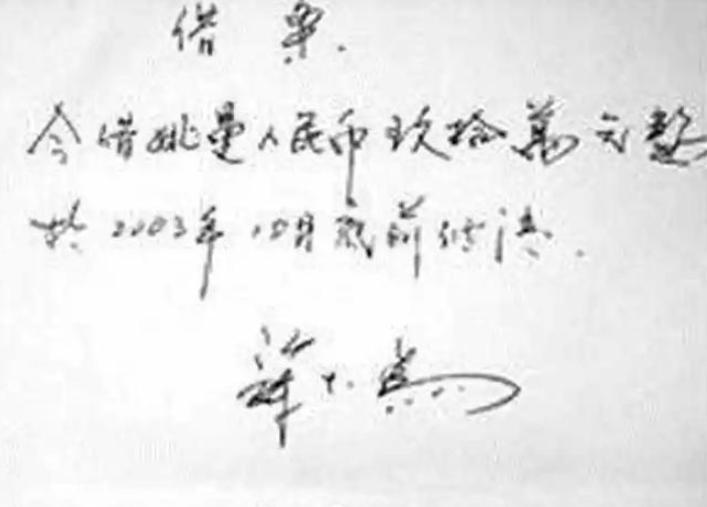 借 票.
今借姚曼人民币玖拾萬元整
於2003年10月底前付清.